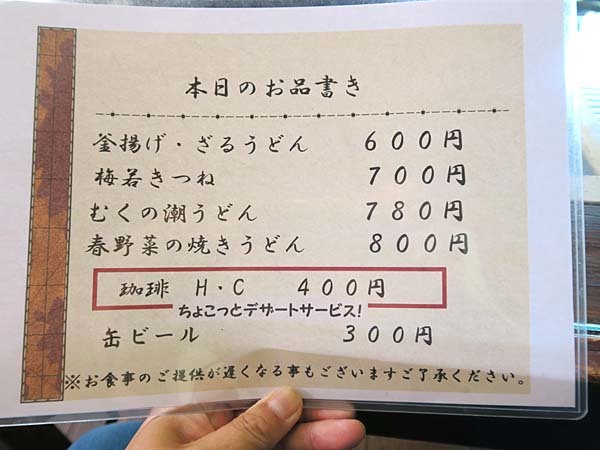 本日のお品書き
釜揚げ・ざるうどん 600円
梅若きつね 700円
むくの潮うどん 780円
春野菜の焼きうどん 800円
珈琲 H・C 400円
ちょこっとデザートサービス!
缶ビール 300円
※お食事のご提供が遅くなる事もございますご了承ください。